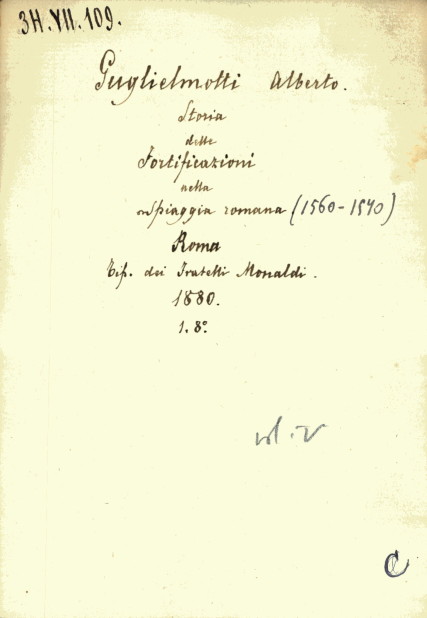 3H.VII.109.
Guglielmotti Alberto.
Storia
delle
Fortificazioni
nella
Spiaggia romana (1560-1570)
Roma
Tip. dei Fratelli Monaldi.
1880.
1. 8°
vol. V
C